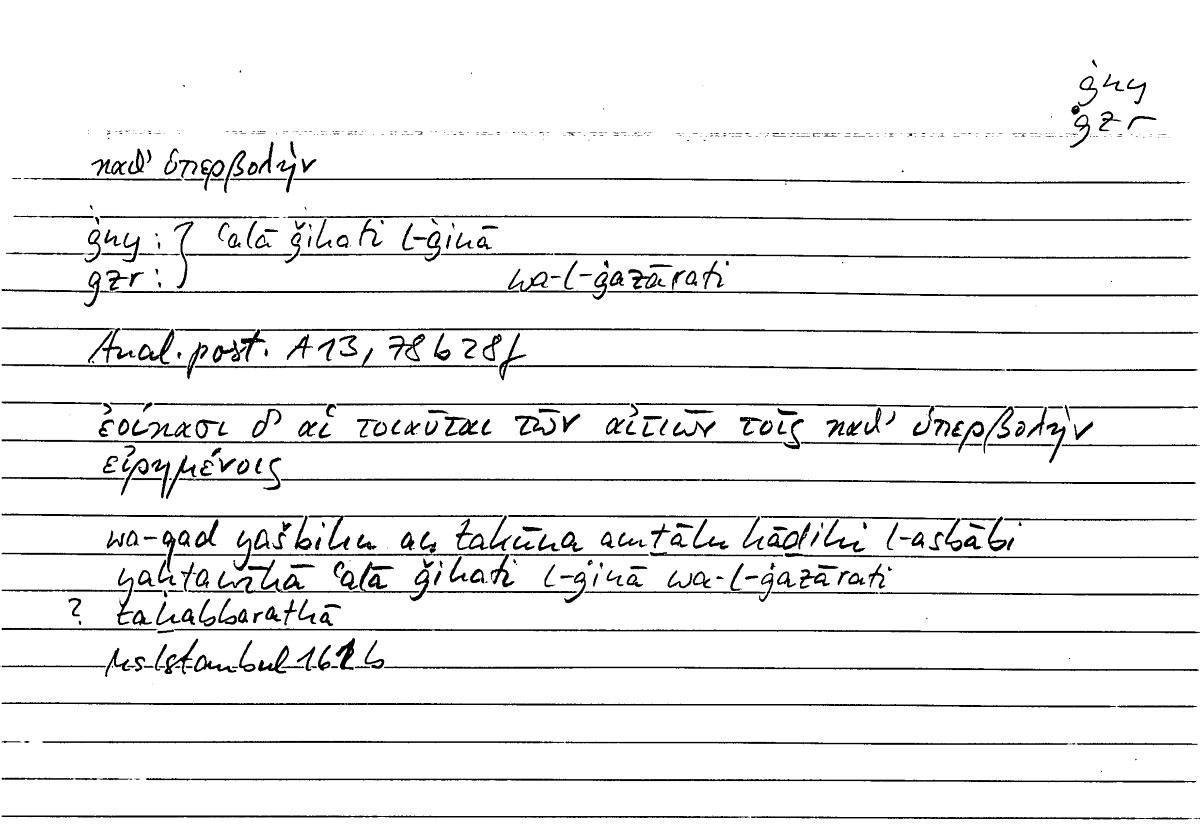 ġny
ġzr
καθ' ὑπερβολὴν
ġny : } ʿalā ǧihati l-ġinā
gzr : wa-l-ġazārati
Anal. post. A 13, 78 b 28 f
ἐοίκασι δ' αἱ τοιαῦται τῶν αἰτιῶν τοῖς καθ' ὑπερβολὴν
εἰρημένοις
wa-qad yašbihu an takūna amṯālu hāḏihi l-asbābi
ʿalā ǧihati l-ġinā wa-l-ġazārati
? taḫabbarathā
Ms Istanbul 161 b